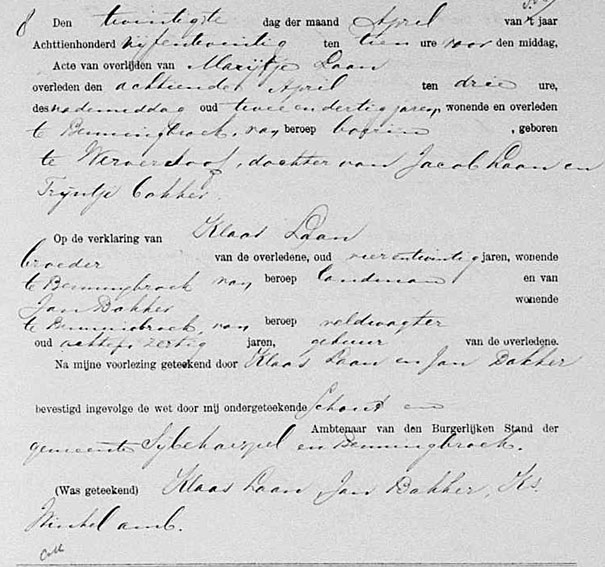 8 Den twintigste dag der maand April van 't jaar
Achttienhonderd vijfentwintig ten tien ure voor den middag,
Acte van overlijden van Marijtje Laan
overleden den achttienden April ten drie ure,
des nademiddag oud twee en dertig jaren, wonende en overleden
te Benningbroek, van beroep boerin, geboren
te Wervershoof, dochter van Jacob Laan en
Trijntje Bakker.
Op de verklaring van Klaas Laan
broeder van de overledene, oud vierentwintig jaren, wonende
te Benningbroek van beroep landman en van
Jan Bakker wonende
te Benningbroek, van beroep veldwagter
oud jaren, gebuur van de overledene.
Na mijne voorlezing geteekend door Klaas Laan en Jan Bakker
bevestigd ingevolge de wet door mij ondergeteekende Schout en
Ambtenaar van den Burgerlijken Stand der
gemeente Sijbekarspel en Benningbroek.
(Was geteekend) Klaas Laan, Jan Bakker, Ks.
Winkel amb.